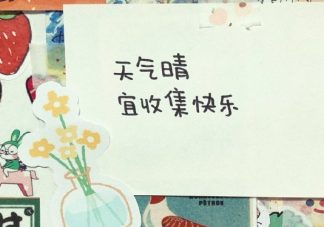 天气晴
宜收集快乐